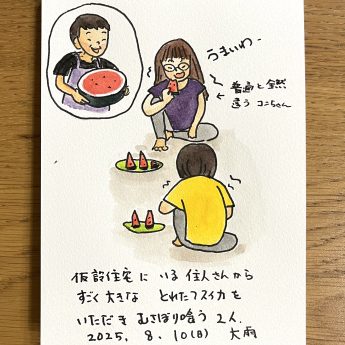 うまいわー
普通と全然
違う コニちゃん
仮設住宅に いる 住人さんから
すごく大きな とれたてスイカを
いただき むさぼり喰う 2人.
2025. 8. 10(日) 大雨